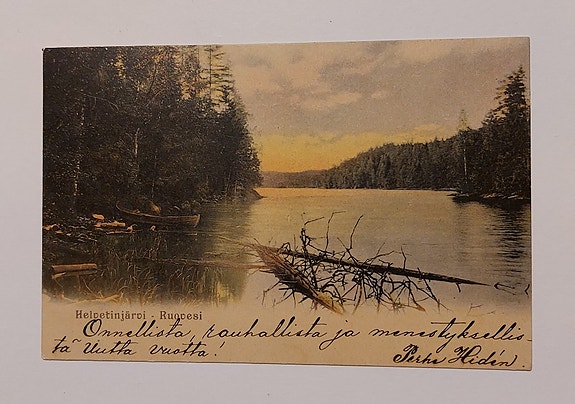 Helvetinjärvi - Ruovesi
Onnellista, rauhallista ja menestyksellis-
tä Uutta vuotta!
Perhe Hidén.